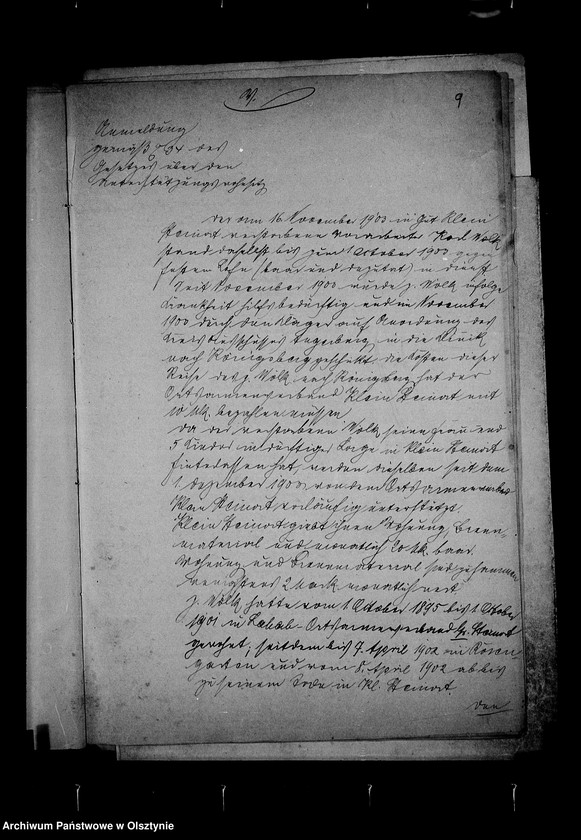 V.
9
Anmeldung
gemäß § 34 des
Gesetzes über den
Unterstützungswohnsitz
Der am 16 November 1903 in Gut Klein
Steinort verstorbene Vorarbeiter Karl Wolk
stand daselbst bis zum 1 October 1903 gegen
festen Lohn (baar und deputat) in Dienst
Seit November 1903 wurde p. Wolk infolge
Krankheit hilfsbedürftig und im November
1903 durch den Kläger auf Anordnung des
Kreis Ausschusses Angerburg in die Klinik
nach Königsberg geschickt. die Kosten dieser
Reise des p. Wolk nach Königsberg hat der
Ortsarmenverband Klein Steinort mit
10 Mk. bezahlen müssen
Da der verstorbene Wolk seine Frau und
5 Kinder in dürftiger Lage in Klein Steinort
hinterlassen hat, werden dieselben seit dem
1. Dezember 1903 von dem Ortsarmenverband
Klein Steinort vorläufig unterstützt.
Klein Steinort giebt Ihnen Wohnung, Brenn
material und monatlich 20 Mk. baar.
Wohnung und Brennmaterial sind zusammen
wenigstens 2 Mark monatlich wert
p. Wolk hatte vom 1 October 1895 bis 1 October
1901 in Labab - Ortsarmenverband Gr. Steinort
gewohnt; seitdem bis 7. April 1902 in Rosen
garten und vom 8. April 1902 ab bis
zu seinem Tode in Kl. Steinort.